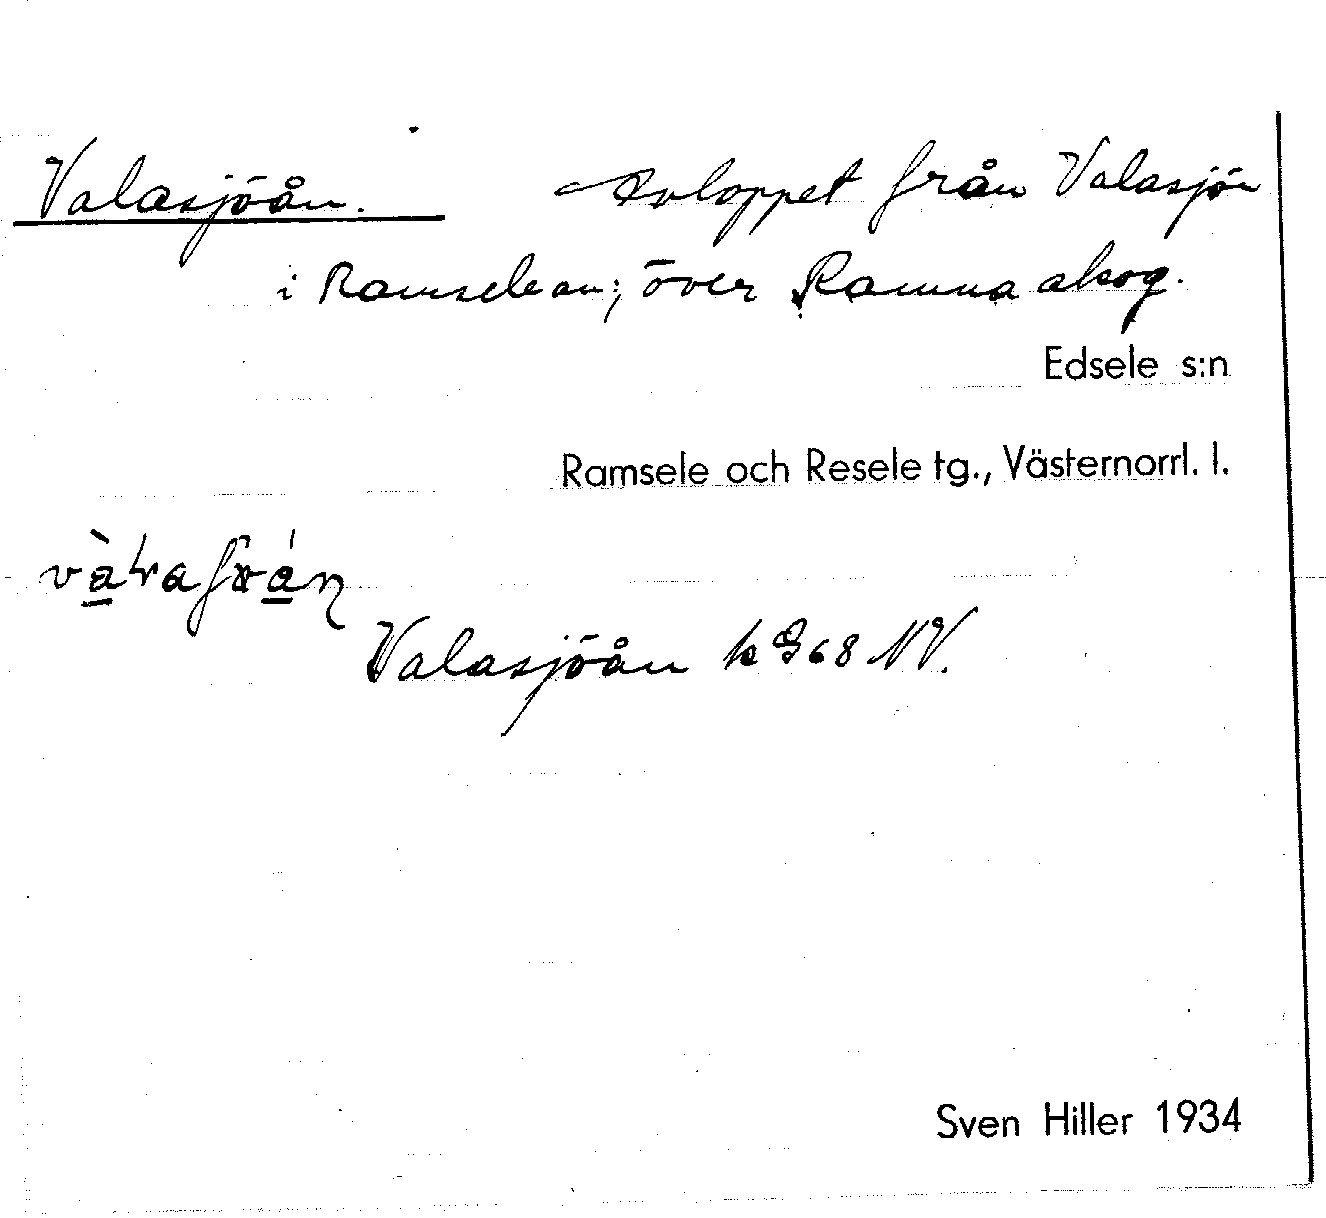 Valasjöån. Avloppet från Valasjön
i Ramselean; över Ramna skog.
Edsele s:n
Ramsele och Resele tg., Västernorrl. l.
Valasjöån k G68 NV.
Sven Hiller 1934